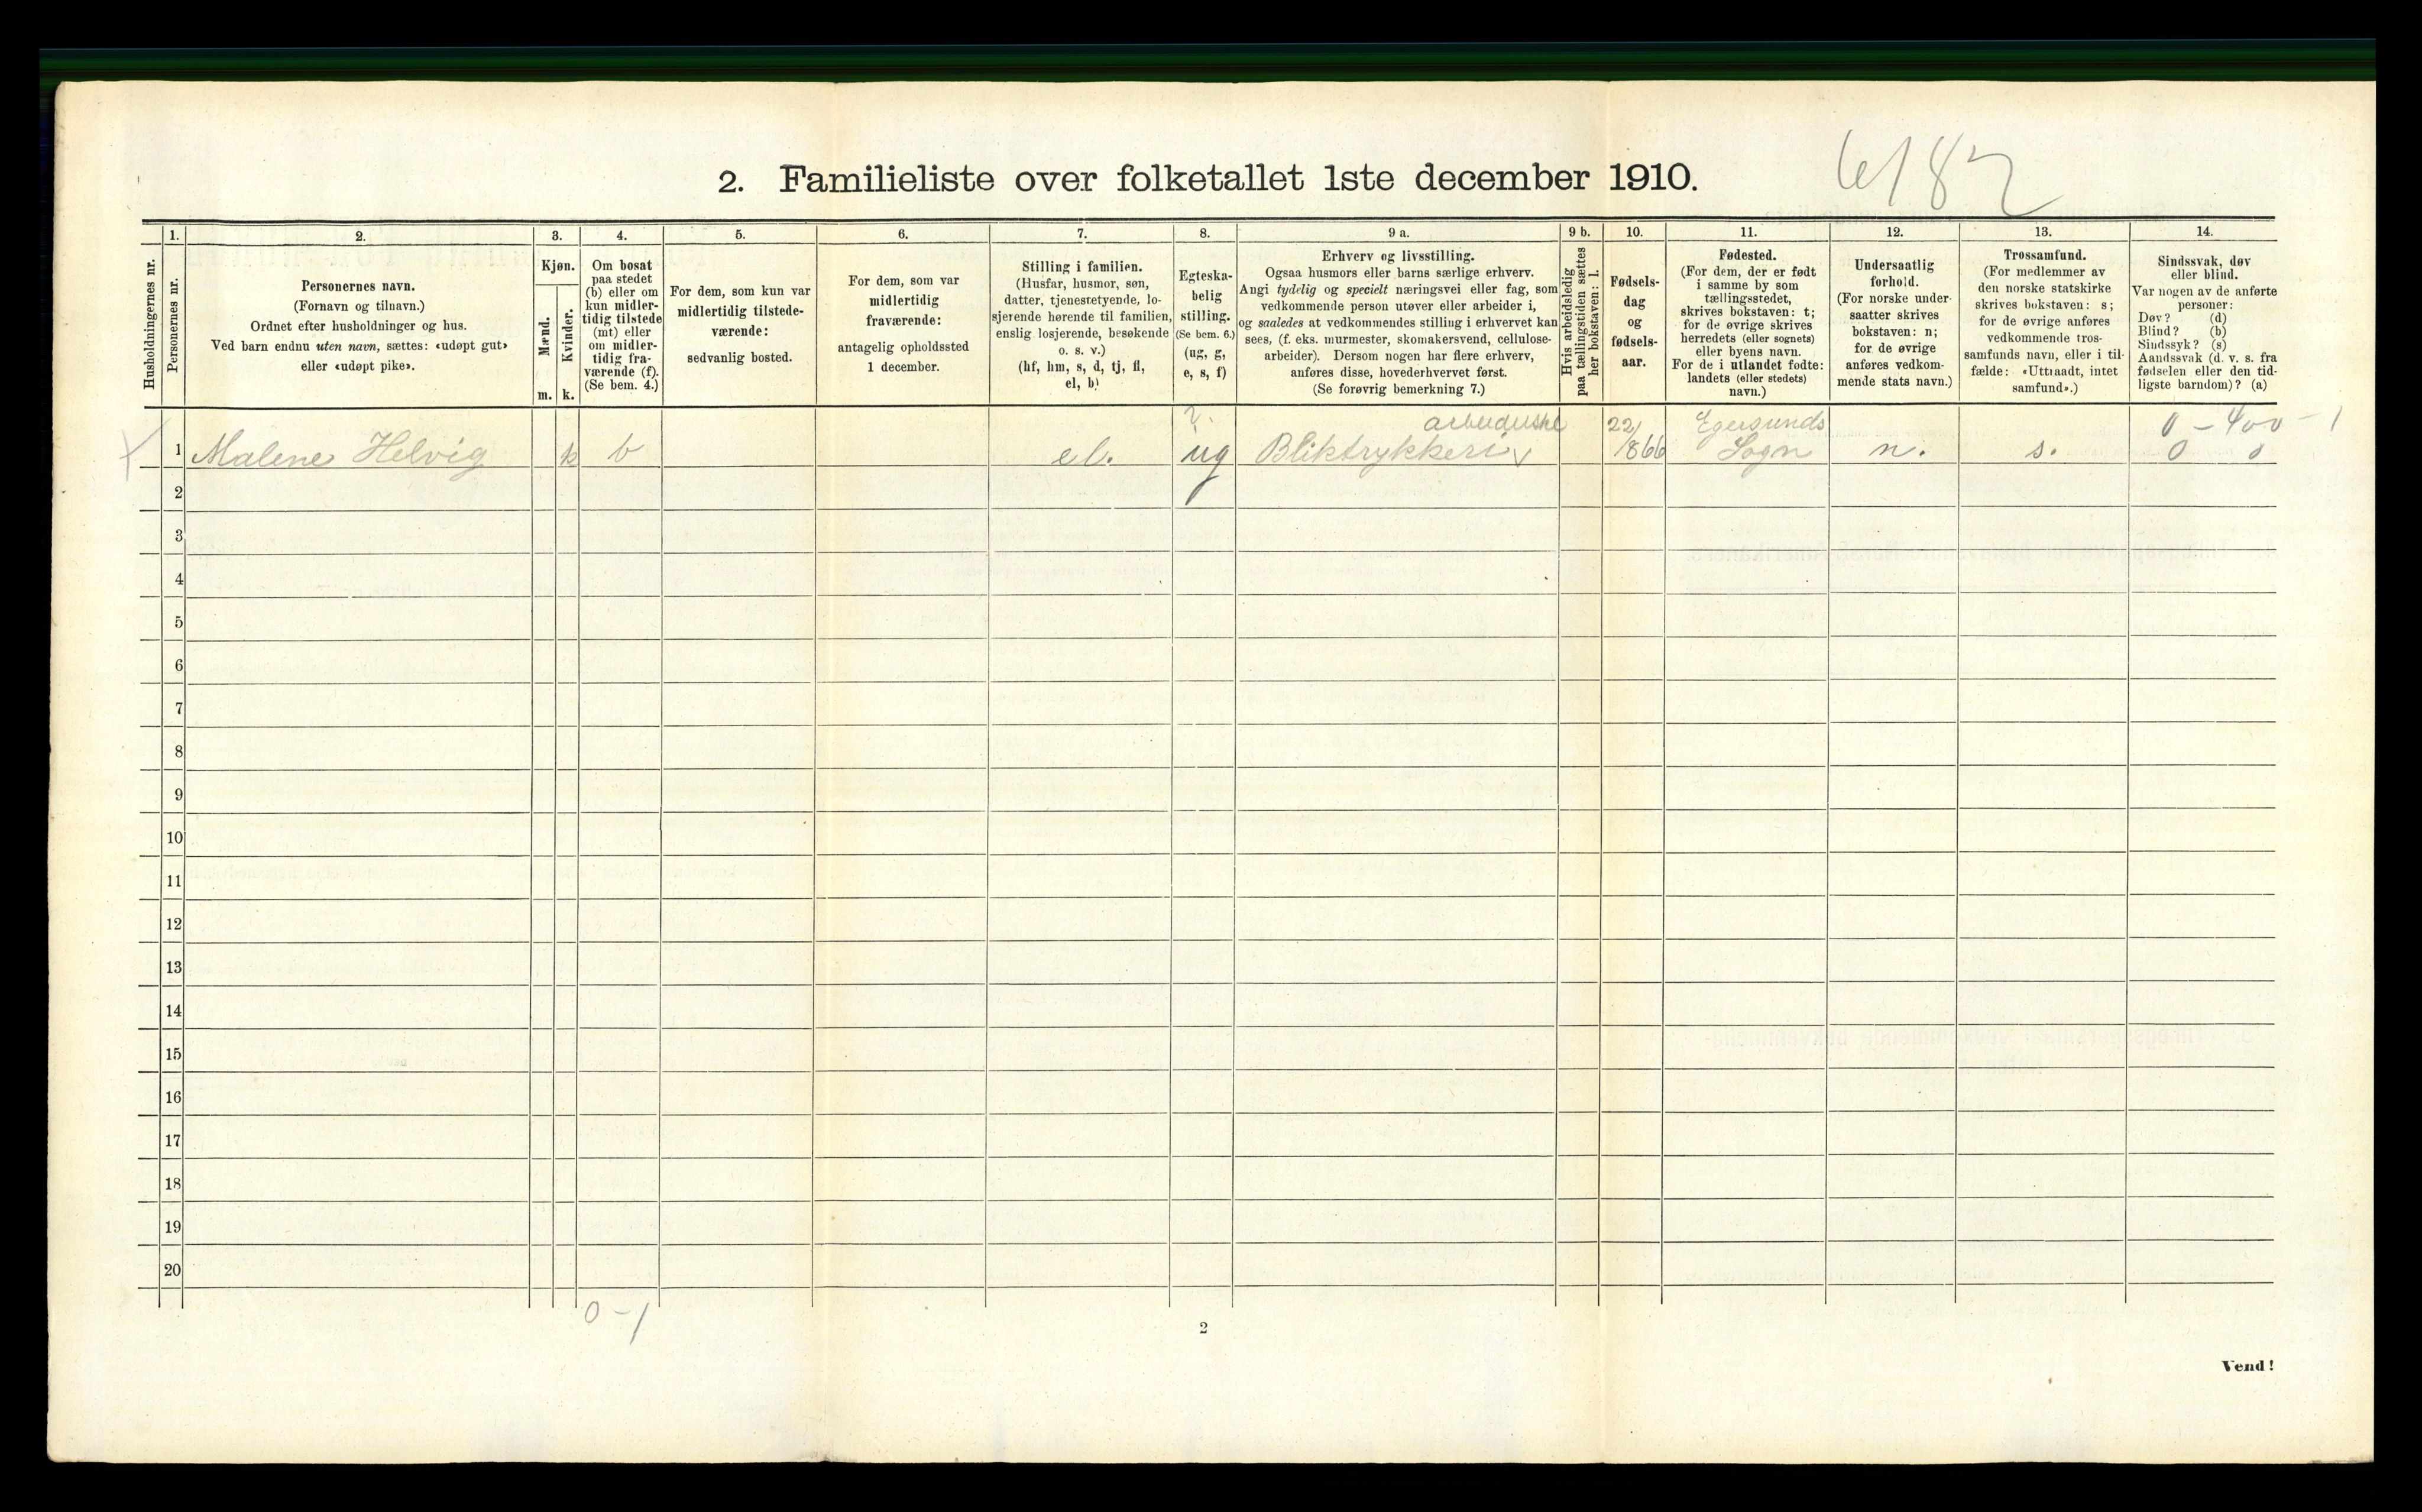 2. Familieliste over folketallet 1ste december 1910.
6182
Husholdningernes nr.
1.
Personernes nr.
2.
Personernes navn.
(Fornavn og tilnavn.)
Ordnet efter husholdninger og hus.
Ved barn endnu uten navn, sættes: «udøpt gut»
eller «udøpt pike».
3.
Kjøn.
Mænd.
m.
Kvinder.
k.
4.
Om bosat
paa stedet
(b) eller om
kun midler-
tidig tilstede
(mt) eller
om midler-
tidig fra-
værende (f).
(Se bem. 4.)
5.
For dem, som kun var
midlertidig tilstede-
værende:
sedvanlig bosted.
6.
For dem, som var
midlertidig
fraværende:
antagelig opholdssted
1 december.
7.
Stilling i familien.
(Husfar, husmor, søn,
datter, tjenestetyende, lo-
sjerende hørende til familien,
enslig losjerende, besøkende
o. s. v.)
(hf, hm, s, d, tj, fl,
el, b)
8.
Egteska-
belig
stilling.
(Se bem. 6.)
(ug, g,
e, s, f)
9 a.
Erhverv og livsstilling.
Ogsaa husmors eller barns særlige erhverv.
Angi tydelig og specielt næringsvei eller fag, som
vedkommende person utøver eller arbeider i,
og saaledes at vedkommendes stilling i erhvervet kan
sees, (f. eks. murmester, skomakersvend, cellulose-
arbeider). Dersom nogen har flere erhverv,
anføres disse, hovederhvervet først.
(Se forøvrig bemerkning 7.)
9 b.
Hvis arbeidsledig
paa tællingstiden sættes
her bokstaven: l.
10.
Fødsels-
dag
og
fødsels-
aar.
11.
Fødested.
(For dem, der er født
i samme by som
tællingsstedet,
skrives bokstaven: t;
for de øvrige skrives
herredets (eller sognets)
eller byens navn.
For de i utlandet fødte:
landets (eller stedets)
navn.)
12.
Undersaatlig
forhold.
(For norske under-
saatter skrives
bokstaven: n;
for de øvrige
anføres vedkom-
mende stats navn.)
13.
Trossamfund.
(For medlemmer av
den norske statskirke
skrives bokstaven: s;
for de øvrige anføres
vedkommende tros-
samfunds navn, eller i til-
fælde: «Uttraadt, intet
samfund».)
14.
Sindssvak, døv
eller blind.
Var nogen av de anførte
personer:
Døv? (d)
Blind? (b)
Sindssyk? (s)
Aandssvak (d. v. s. fra
fødselen eller den tid-
ligste barndom)? (a)
2. arbeiderske 22/ Egersunds 0 - 400 - 1
1 Malene Helvig k b el. ug Bliktrykkeri 1866 Sogn n. s. 0 0
2
3
4
5
6
7
8
9
10
11
12
13
14
15
16
17
18
19
20
0 - 1
2
Vend!